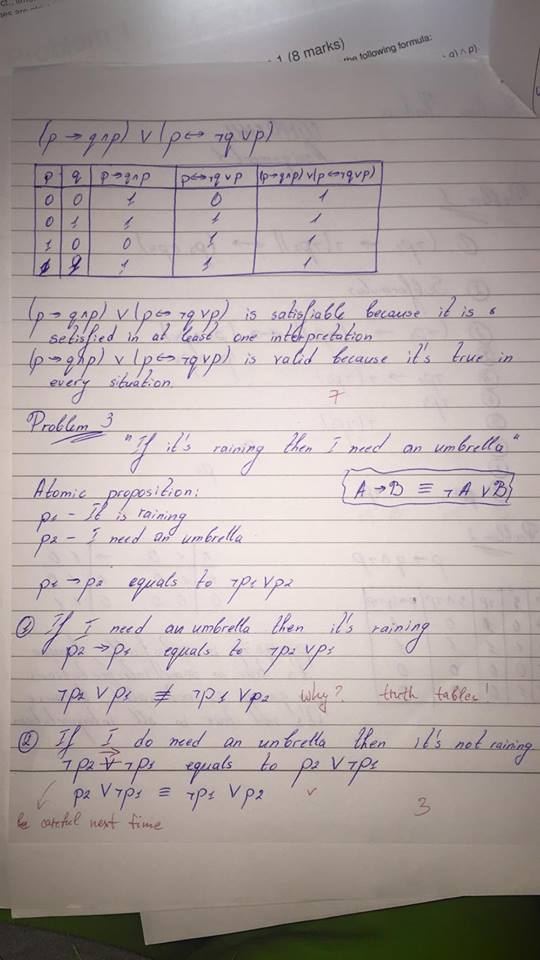 1 (8 marks)
the following formula:
q) ∧ p).
(p → q∧p) ∨ (p ↔ ¬q ∨ p)
p q p→q∧p p↔¬q∨p (p→q∧p)∨(p↔¬q∨p)
0 0 1 0 1
0 1 1 1 1
1 0 0 1 1
1 1 1 1 1
(p→q∧p) ∨ (p↔¬q∨p) is satisfiable because it is
setisfied in at least one interpretation
(p→q∧p) ∨ (p↔¬q∨p) is valid because it's true in
every situation.
7
Problem 3
"If it's raining then I need an umbrella"
Atomic proposition:
A→B ≡ ¬A∨B
p1 – It is raining
p2 – I need an umbrella
p1 → p2 equals to ¬p1∨p2
① If I need an umbrella then it's raining
p2→p1 equals to ¬p2∨p1
¬p2∨p1 ≢ ¬p1∨p2 why? truth tables!
② If I do need an unbrella then it's not raining
¬p2 → ¬p1 equals to p2∨¬p1
p2∨¬p1 ≡ ¬p1∨p2 v
3
be careful next time